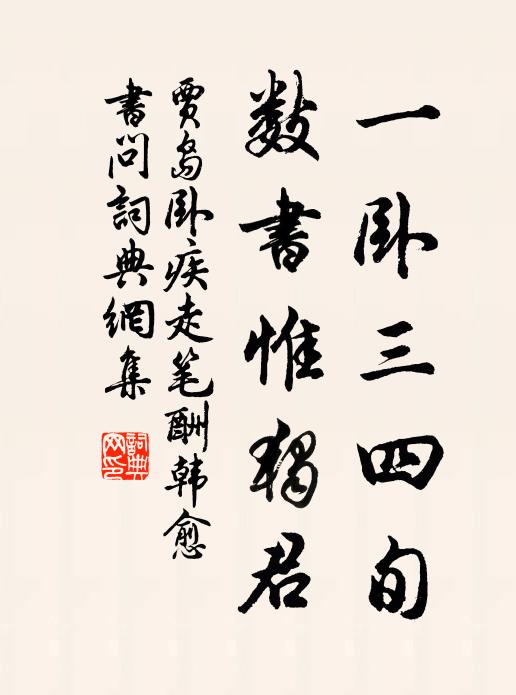 一卧三四旬
数书惟独君
贾岛卧疾走笔酬韩愈
書问詞典網集
詞典网印